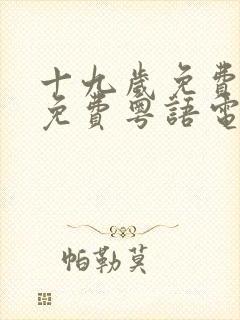 十九歲免費
免費粵語電
帕勒莫